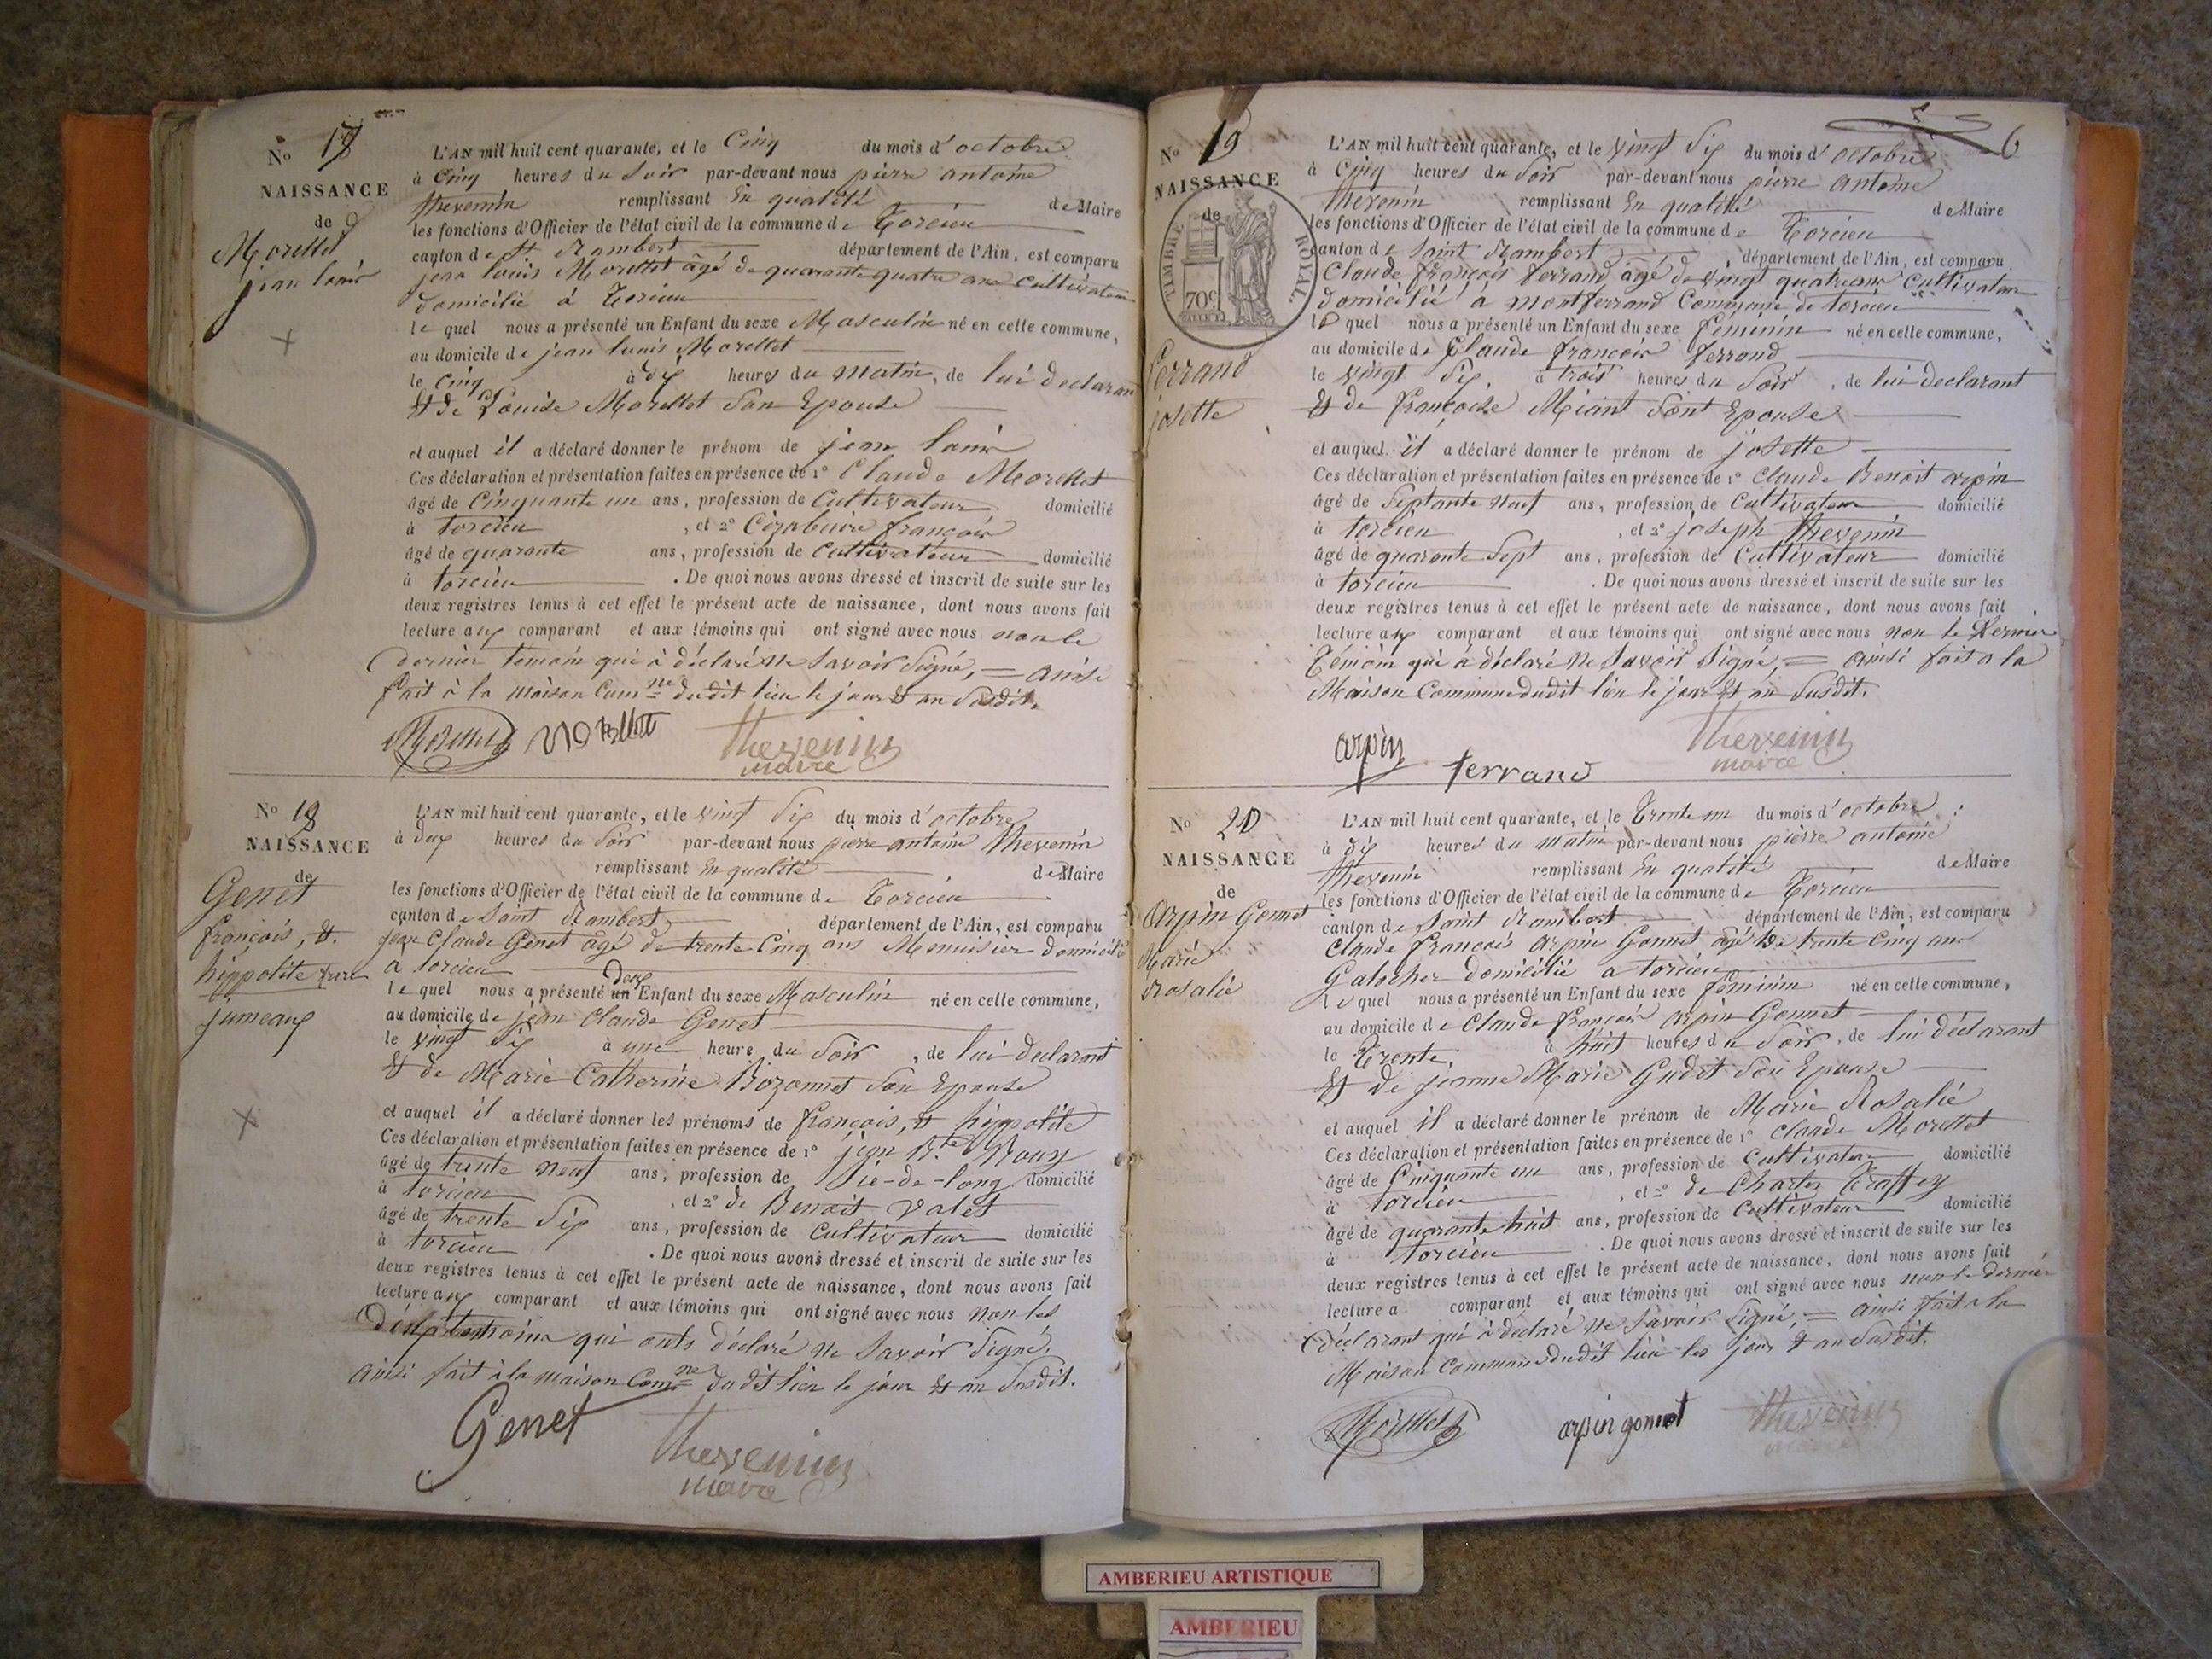 N° 17
NAISSANCE
de
Morellet
jean louis
L'AN mil huit cent quarante, et le Cinq du mois d'octobre
à Cinq heures du Soir par-devant nous pierre antoine
thevenin remplissant En qualité de Maire
les fonctions d'Officier de l'état civil de la commune de Torcieu
canton de St Rambert département de l'Ain, est comparu
jean louis Morellet âgé de quarante quatre ans cultivateur
domicilié à Torcieu
le quel nous a présenté un Enfant du sexe Masculin né en cette commune,
au domicile de jean louis Morellet
le Cinq à dix heures du matin, de lui declarant
Et de Louise Morellet Son Epouse
et auquel il a déclaré donner le prénom de jean louis
Ces déclaration et présentation faites en présence de 1° Claude Morellet
âgé de Cinquante un ans, profession de Cultivateur domicilié
à torcieu , et 2° françois
âgé de quarante ans, profession de cultivateur domicilié
à torcieu . De quoi nous avons dressé et inscrit de suite sur les
deux registres tenus à cet effet le présent acte de naissance, dont nous avons fait
lecture aux comparant et aux témoins qui ont signé avec nous non le
dernier temoin qui à déclaré ne Savoir Signé, = ainsi
fait à la maison Comne dudit lieu le jour Et an Susdit.
Morellet Morellet Thevenin
maire
N° 18
NAISSANCE
de
Genet
françois, Et
hippolite frere
jumeaux
L'AN mil huit cent quarante, et le vingt Six du mois d'octobre
à deux heures du Soir par-devant nous pierre antoine thevenin
remplissant En qualité de Maire
les fonctions d'Officier de l'état civil de la commune de Torcieu
canton de Saint Rambert département de l'Ain, est comparu
jean Claude Genet âgé de trente Cinq ans Menuisier domicilié
à torcieu
le quel nous a présenté un deux Enfant du sexe Masculin né en cette commune,
au domicile de jean Claude Genet
le vingt Six à une heure du Soir, de lui declarant
Et de Marie Catherine Bozonnet Son Epouse
et auquel il a déclaré donner les prénoms de françois, Et hippolite
Ces déclaration et présentation faites en présence de 1° jean Bte Roux
âgé de trente neuf ans, profession de Sie-de-long domicilié
à torcieu , et 2° de Benoit Valet
âgé de trente Six ans, profession de Cultivateur domicilié
à torcieu . De quoi nous avons dressé et inscrit de suite sur les
deux registres tenus à cet effet le présent acte de naissance, dont nous avons fait
lecture aux comparant et aux témoins qui ont signé avec nous non les
qui onts déclaré ne Savoir Signé.
ainsi fait à la maison Comne dudit lieu le jour Et an Susdit.
Genet Thevenin
maire
6
N° 19
NAISSANCE
de
TIMBRE ROYAL
70c
ferrand
josette
L'AN mil huit cent quarante, et le vingt Six du mois d'octobre
à Cinq heures du Soir par-devant nous pierre antoine
thevenin remplissant En qualité de Maire
les fonctions d'Officier de l'état civil de la commune de Torcieu
canton de Saint Rambert département de l'Ain, est comparu
Claude françois ferrand âgé de vingt quatre ans cultivateur
domicilié à montferrand Commune de torcieu
le quel nous a présenté un Enfant du sexe féminin né en cette commune,
au domicile de Claude françois ferrand
le vingt Six, à trois heures du Soir, de lui declarant
Et de françoise Miant Sont Epouse
et auquel il a déclaré donner le prénom de josette
Ces déclaration et présentation faites en présence de 1° Claude Benoit arpin
âgé de Septante neuf ans, profession de Cultivateur domicilié
à torcieu , et 2° joseph thevenin
âgé de quarante Sept ans, profession de Cultivateur domicilié
à torcieu . De quoi nous avons dressé et inscrit de suite sur les
deux registres tenus à cet effet le présent acte de naissance, dont nous avons fait
lecture aux comparant et aux témoins qui ont signé avec nous non le dernier
Témoin qui à déclaré ne Savoir Signé, = ainsi fait a la
Maison Commune dudit lieu le jour Et an Susdit.
arpin ferrand Thevenin
maire
N° 20
NAISSANCE
de
Arpin Gonnet
Marie
Rosalie
L'AN mil huit cent quarante, et le Trente un du mois d'octobre
à dix heures du matin par-devant nous pierre antoine
thevenin remplissant En qualité de Maire
les fonctions d'Officier de l'état civil de la commune de Torcieu
canton de Saint Rambert département de l'Ain, est comparu
Claude françois arpin Gonnet âgé de trente Cinq ans
Galocher domicilié a torcieu
le quel nous a présenté un Enfant du sexe féminin né en cette commune,
au domicile de Claude françois arpin Gonnet
le Trente, à huit heures du Soir, de lui déclarant
Et de jeanne Marie Gudet Son Epouse
et auquel il a déclaré donner le prénom de Marie Rosalie
Ces déclaration et présentation faites en présence de 1° Claude Morellet
âgé de Cinquante un ans, profession de Cultivateur domicilié
à torcieu , et 2° de Charles
âgé de quarante huit ans, profession de Cultivateur domicilié
à torcieu . De quoi nous avons dressé et inscrit de suite sur les
deux registres tenus à cet effet le présent acte de naissance, dont nous avons fait
lecture a comparant et aux témoins qui ont signé avec nous non le dernier
déclarant qui à declaré ne Savoir Signé, = ainsi fait a la
Maison Commune dudit lieu les jour & an Susdit.
Morellet arpin gonnet Thevenin
maire
AMBERIEU ARTISTIQUE
AMBERIEU